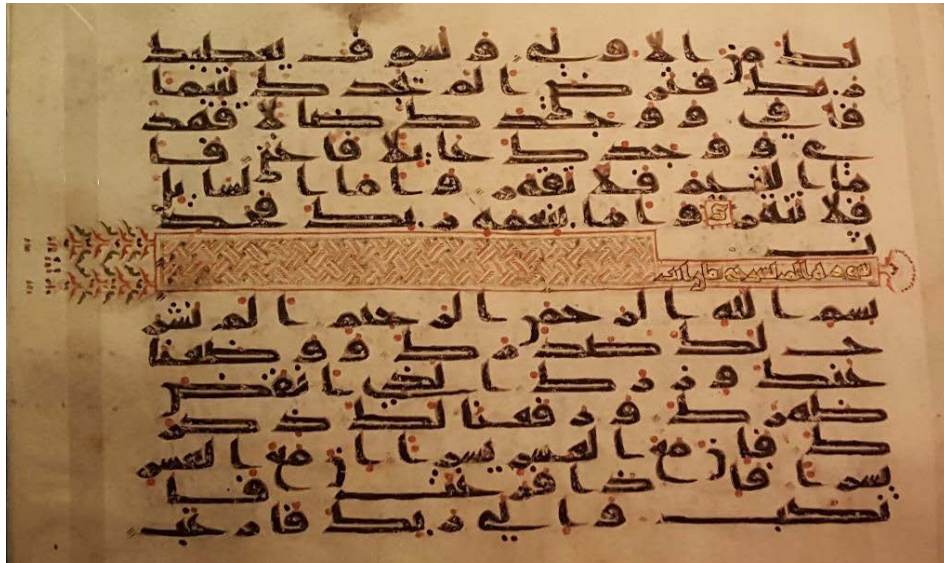 لك من الاولى ولسوف يعطيك
ربك فترضى الم يجدك يتيما
فاوى ووجدك ضالا فهد
ى ووجدك عايلا فاغنى فا
ما اليتيم فلا تقهر واما السايل
فلا تنهر واما بنعمة ربك فحد
ث
بسم الله الرحمن الرحيم الم نشر
ح لك صدرك ووضعنا
عنك وزرك الذي انقض
ظهرك ورفعنا لك ذكر
ك فان مع العسر يسرا ان مع العسر
يسرا فاذا فرغت فا
نصب والى ربك فارغب